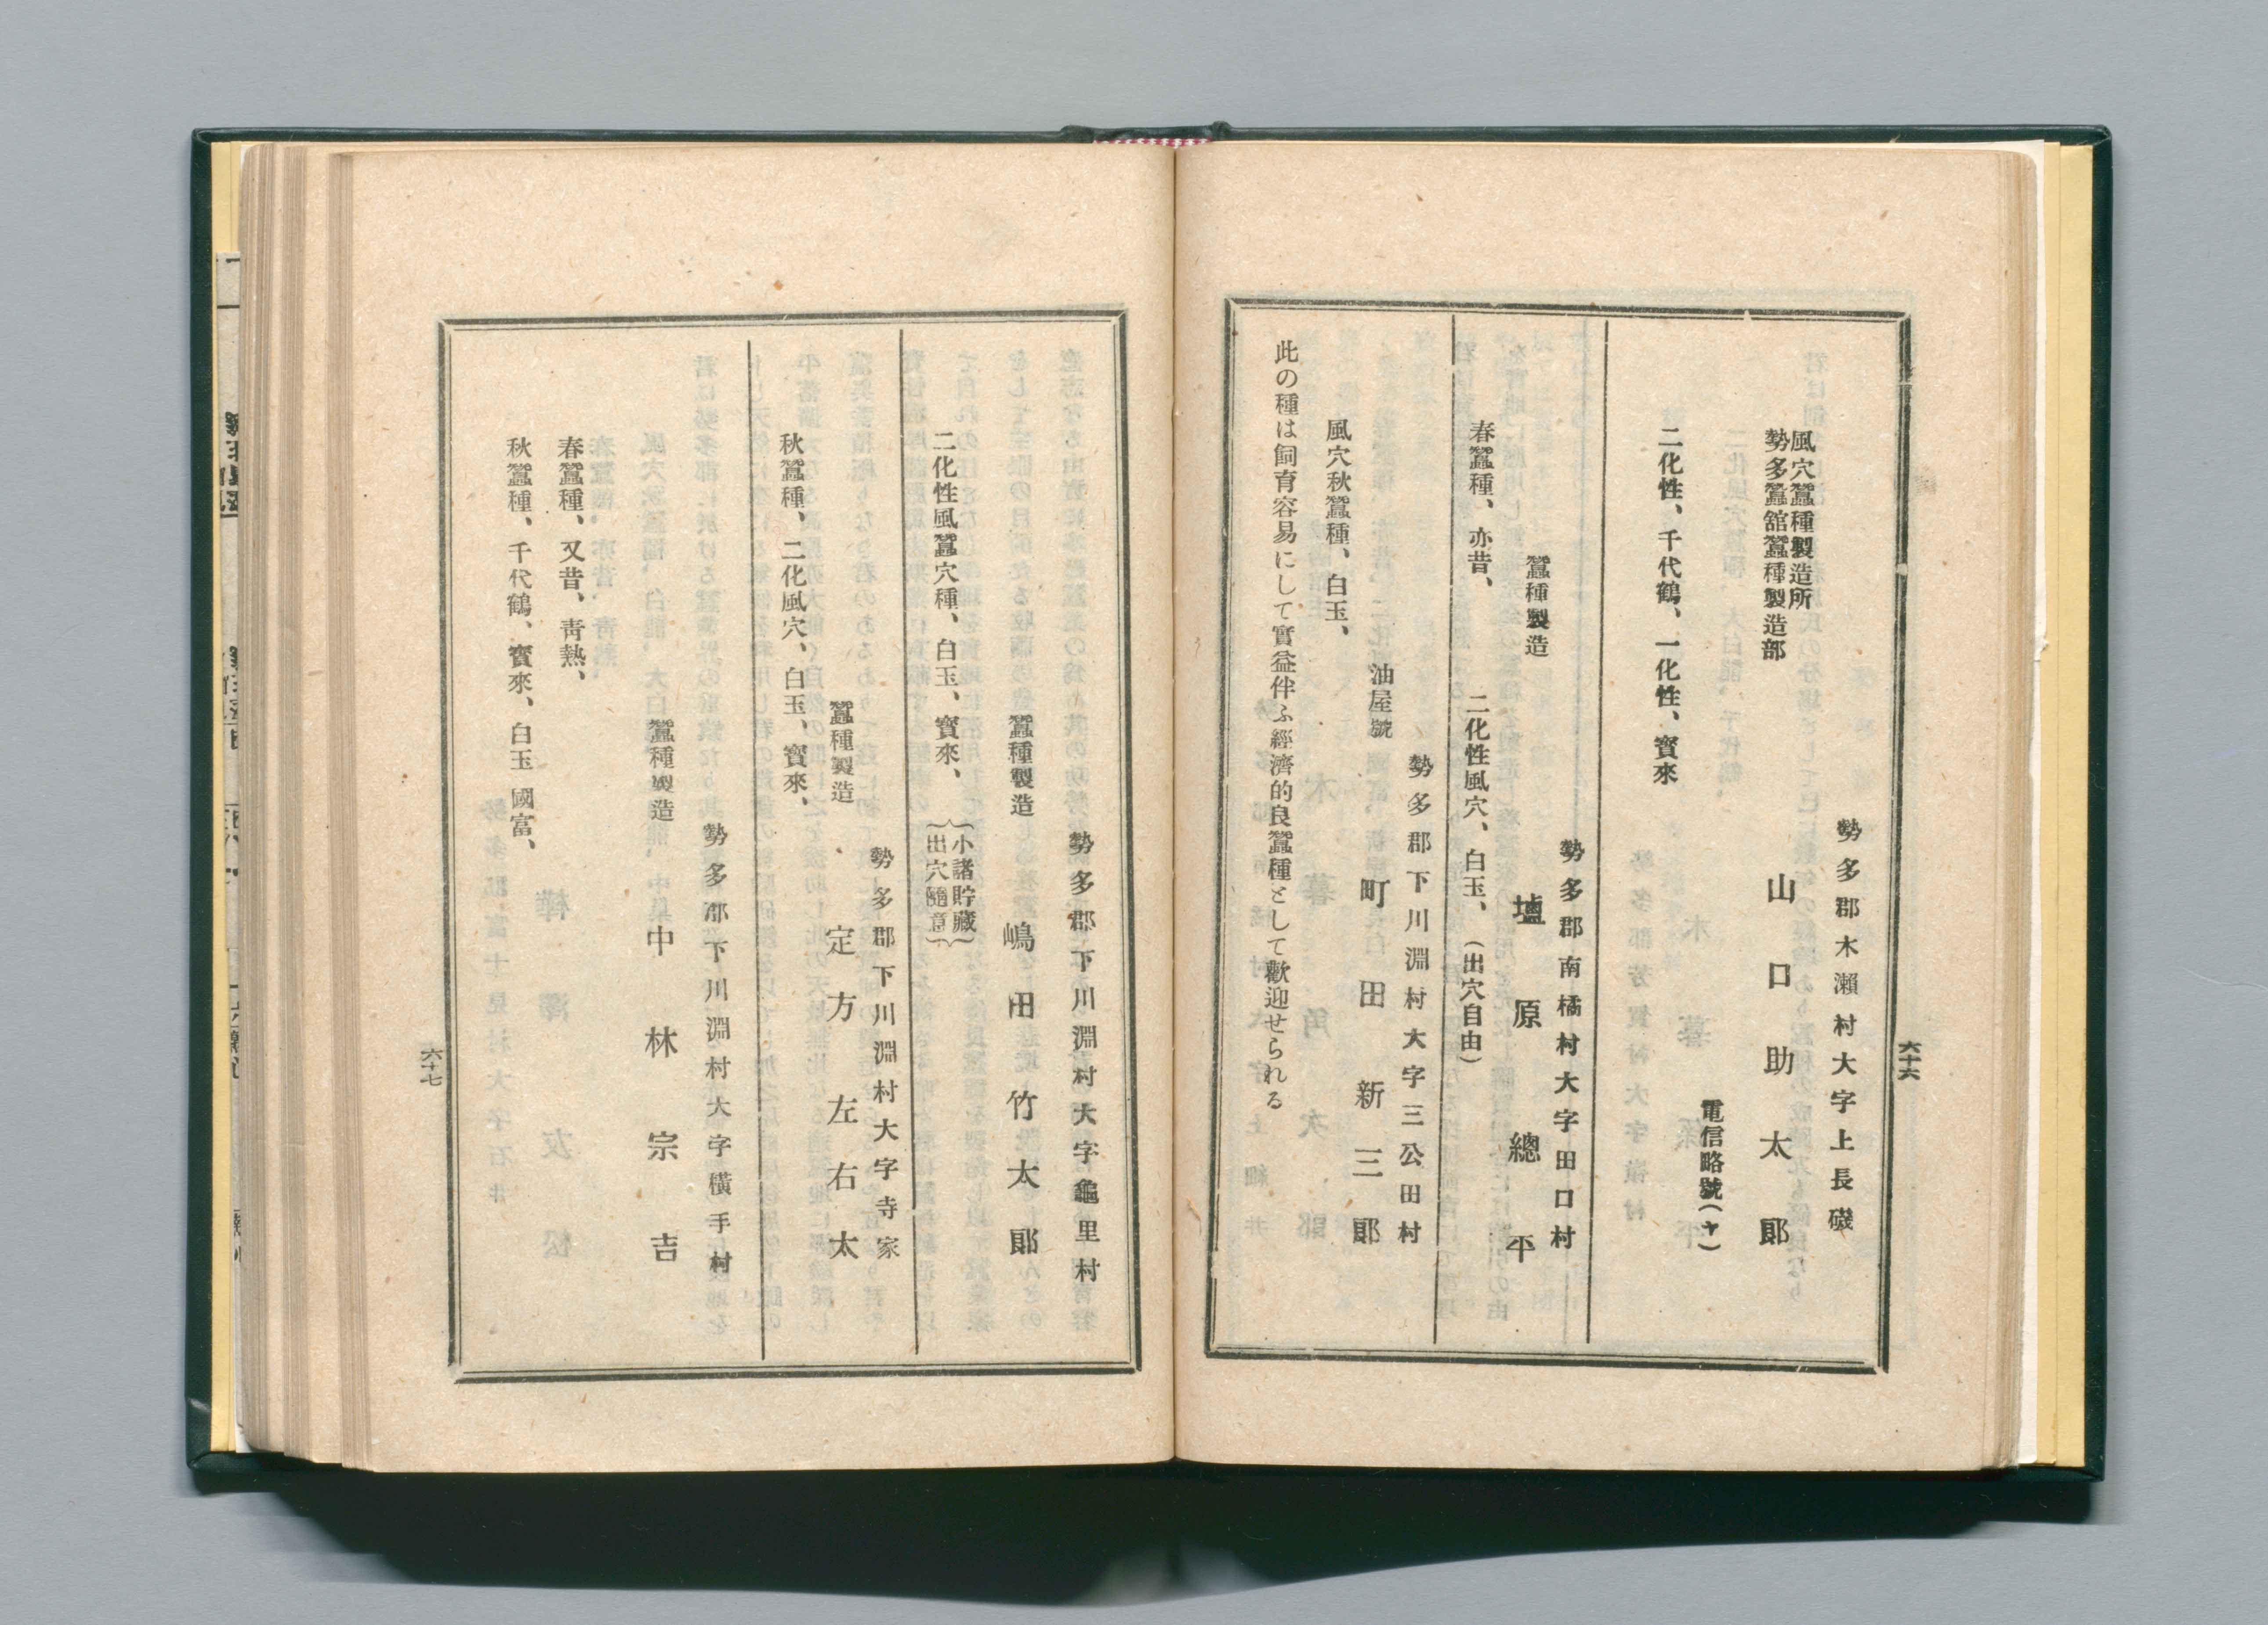 六十六
勢多郡木瀬村大字上長磯
風穴蠶種製造所
勢多蠶舘蠶種製造部
山口助太郎
電信略號(ヤ)
二化性、千代鶴、一化性、寳來
勢多郡南橘村大字田口村
蠶種製造
塩原總平
春蠶種、亦昔、
二化性風穴、白玉、(出穴自由)
勢多郡下川淵村大字三公田村
油屋號
町田新三郎
風穴秋蠶種、白玉、
此の種は飼育容易にして實益伴ふ經濟的良蠶種として歡迎せられる
勢多郡下川淵村大字龜里村
蠶種製造
嶋田竹太郎
二化性風蠶穴種、白玉、寳來、
小諸貯藏
出穴隨意
勢多郡下川淵村大字寺家
蠶種製造
定方左右太
秋蠶種、二化風穴、白玉、寳來、
勢多郡下川淵村大字横手村
蠶種製造
中林宗吉
春蠶種、又昔、靑熱、
秋蠶種、千代鶴、寳來、白玉國富、
六十七